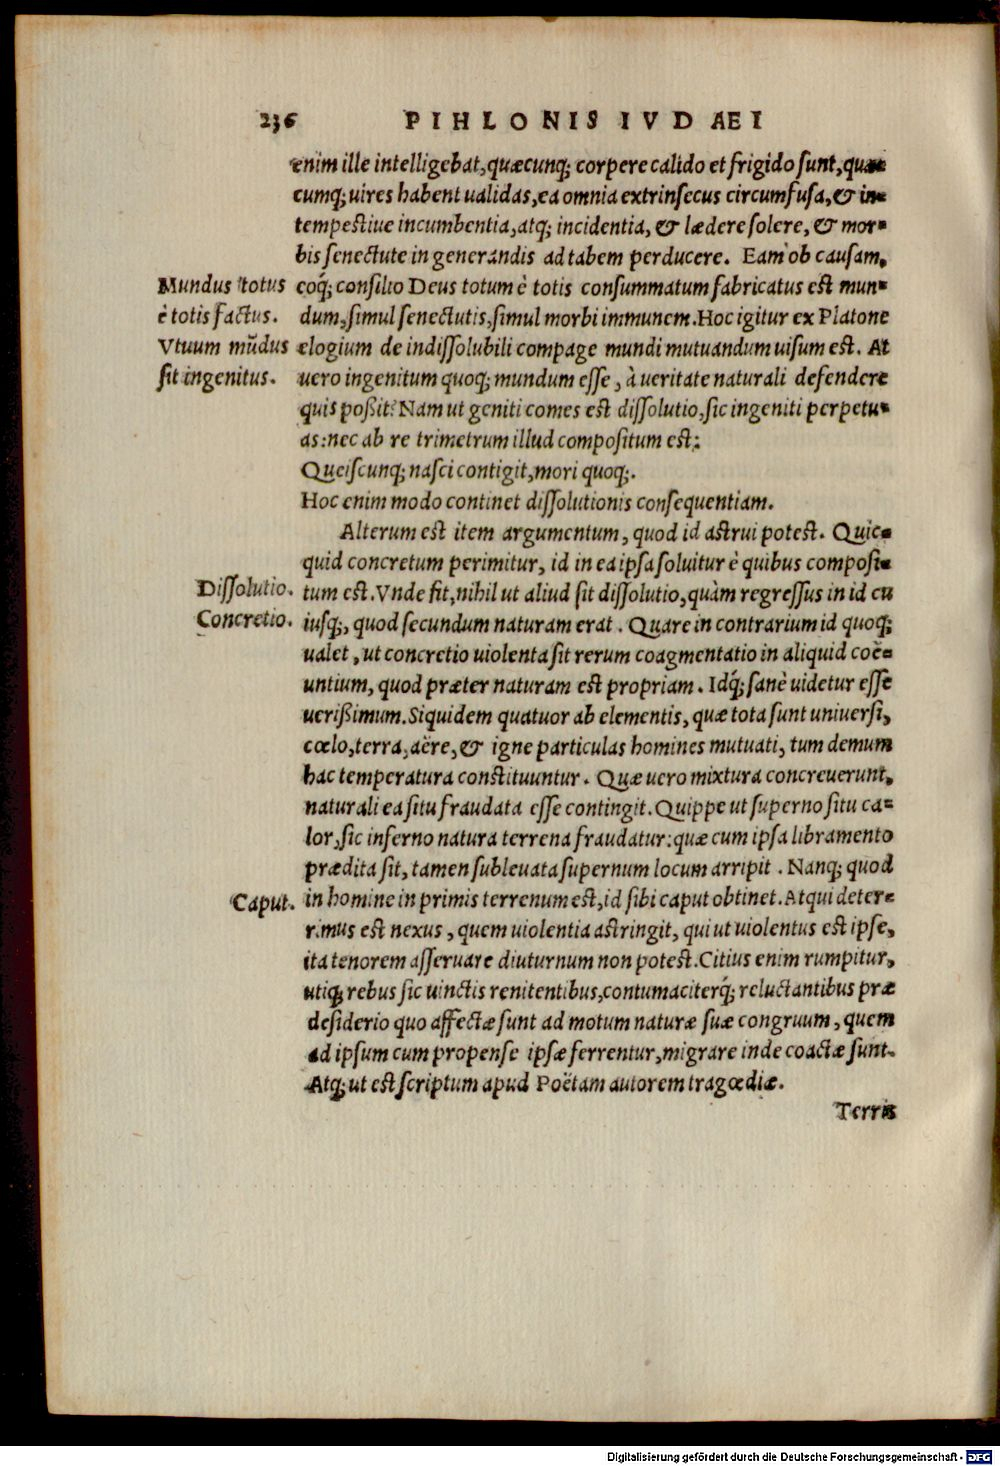 236 PIHLONIS IVDAEI
enim ille intelligebat, quæcunq; corpere calido et frigido sunt, quæ-
cumq; uires habent ualidas, ea omnia extrinsecus circumfusa, & in-
tempestiue incumbentia, atq; incidentia, & lædere solere, & mor-
bis senectute in generandis ad tabem perducere. Eam ob causam,
Mundus totus
è totis factus.
Vtuum mũdus
sit ingenitus.
coq́; consilio Deus totum è totis consummatum fabricatus est mun-
dum, simul senectutis, simul morbi immunem. Hoc igitur ex Platone
elogium de indissolubili compage mundi mutuandum uisum est. At
uero ingenitum quoq; mundum esse, à ueritate naturali defendere
quis poßit? Nam ut geniti comes est dissolutio, sic ingeniti perpetu-
as: nec ab re trimetrum illud compositum est:
Queiscunq; nasci contigit, mori quoq;.
Hoc enim modo continet dissolutionis consequentiam.
Alterum est item argumentum, quod id astrui potest. Quic-
quid concretum perimitur, id in ea ipsa soluitur è quibus composi-
Dissolutio.
Concretio.
tum est. Vnde fit, nihil ut aliud sit dissolutio, quàm regressus in id cu
iusq;, quod secundum naturam erat. Quare in contrarium id quoq;
ualet, ut concretio uiolenta sit rerum coagmentatio in aliquid coë-
untium, quod præter naturam est propriam. Idq́; sanè uidetur esse
uerißimum. Siquidem quatuor ab elementis, quæ tota sunt uniuersi,
cœlo, terra, aëre, & igne particulas homines mutuati, tum demum
hac temperatura constituuntur. Quæ uero mixtura concreuerunt,
naturali ea situ fraudata esse contingit. Quippe ut superno situ ca-
lor, sic inferno natura terrena fraudatur: quæ cum ipsa libramento
prædita sit, tamen subleuata supernum locum arripit. Nanq; quod
Caput.
in homine in primis terrenum est, id sibi caput obtinet. Atqui deter-
rimus est nexus, quem uiolentia astringit, qui ut uiolentus est ipse,
ita tenorem asseruare diuturnum non potest. Citius enim rumpitur,
utiq; rebus sic uinctis renitentibus, contumaciterq́; reluctantibus præ
desiderio quo affectæ sunt ad motum naturæ suæ congruum, quem
ad ipsum cum propense ipsæ ferrentur, migrare inde coactæ sunt.
Atq; ut est scriptum apud Poëtam autorem tragœdiæ.
Terris
Digitalisierung gefördert durch die Deutsche Forschungsgemeinschaft - DFG